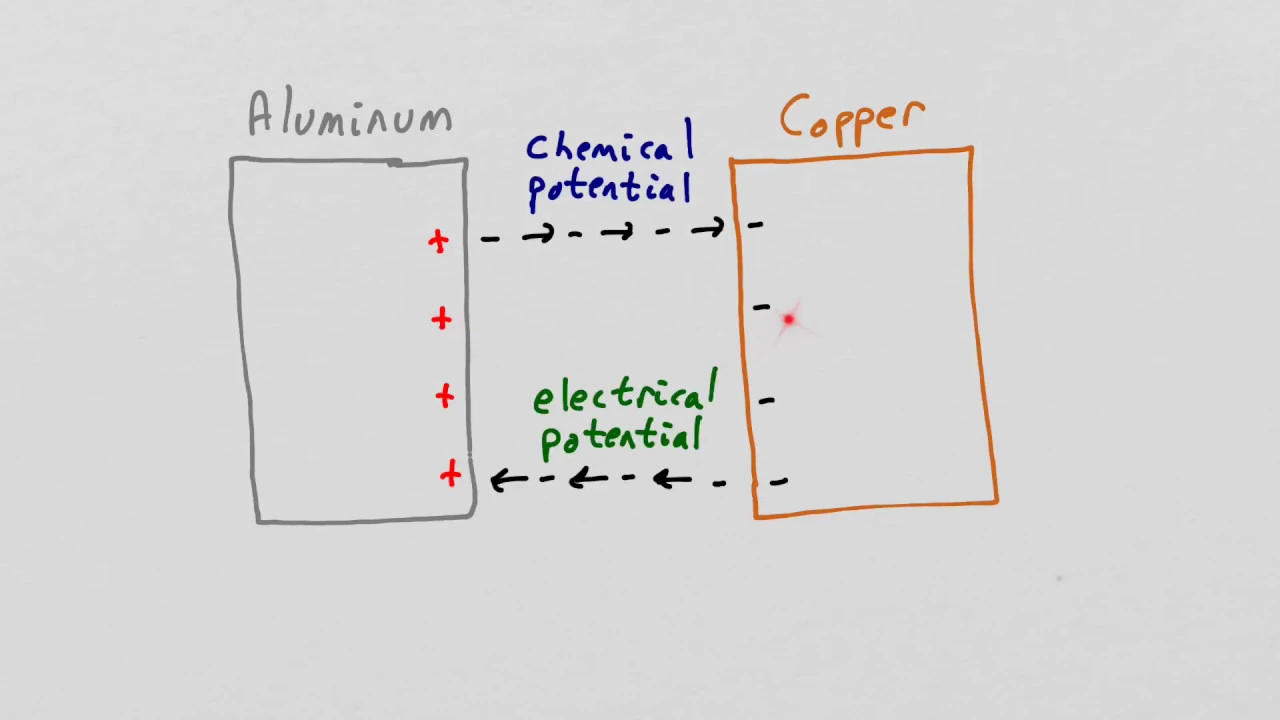 Aluminum
Copper
chemical
potential
+ - → - → - → -
+ -
electrical
potential
+ -
+ ← - ← - ← - -